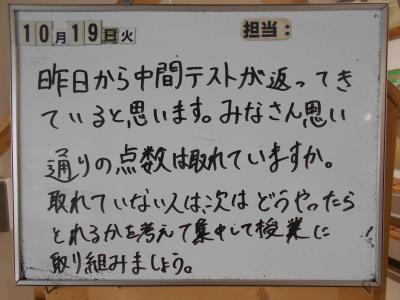 10月19日火 担当:
昨日から中間テストが返ってき
ていると思います。みなさん思い
通りの点数は取れていますか。
取れていない人は、次はどうやったら
とれるかを考えて集中して授業に
取り組みましょう。